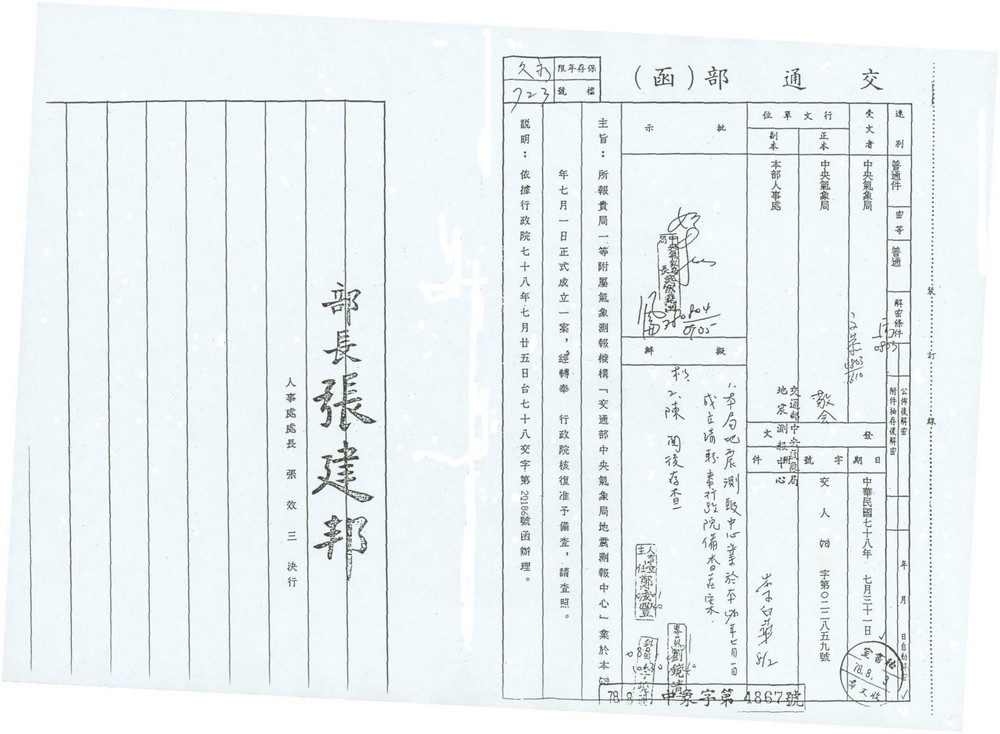 交通部（函）
保存年限
永久
檔號
723
速別
普通件
密等
普通
解密條件
公佈後解密
附件抽存後解密
年月日自動解密
受文者
中央氣象局
行文單位
正本
中央氣象局
副本
本部人事處
批示
擬辦
發文
日期
中華民國七十八年七月三十一日
字號
交人78字第〇二二八五九號
附件
裝訂線
敬會
交通部中央氣象局
地震測報中心
1.本局地震測報中心業於本78年七月一日
成立請轉奉行政院備查在案
2.陳閱後存查
0804
0905
秘書室
78.8.3
收文章
中象字第4867號
主旨：所報貴局一等附屬氣象測報機構「交通部中央氣象局地震測報中心」業於本78
年七月一日正式成立一案，經轉奉　行政院核復准予備查，請查照。
說明：依據行政院七十八年七月廿五日台七十八交字第20186號函辦理。
部長張建邦
人事處處長　張效三　決行